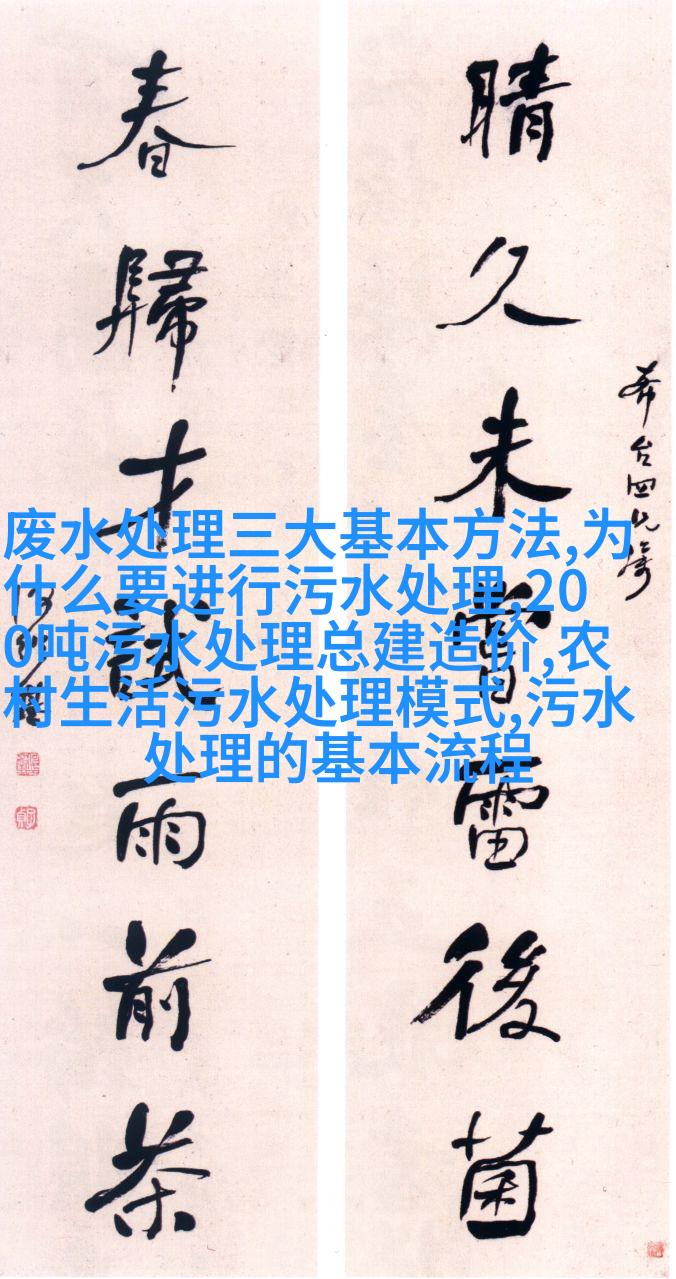 晴久未嘗雷後菌
春歸才試雨前茶
废水处理三大基本方法,为
什么要进行污水处理,20
0吨污水处理总建造价,农
村生活污水处理模式,污水
处理的基本流程